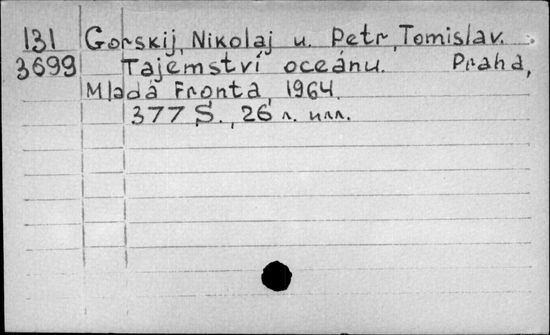 131 Gorskij, Nikolaj u. Petr, Tomislav.
3699 Tajemství oceánu. Praha,
Mladá Fronta, 1964.
377 S., 26 л. илл.